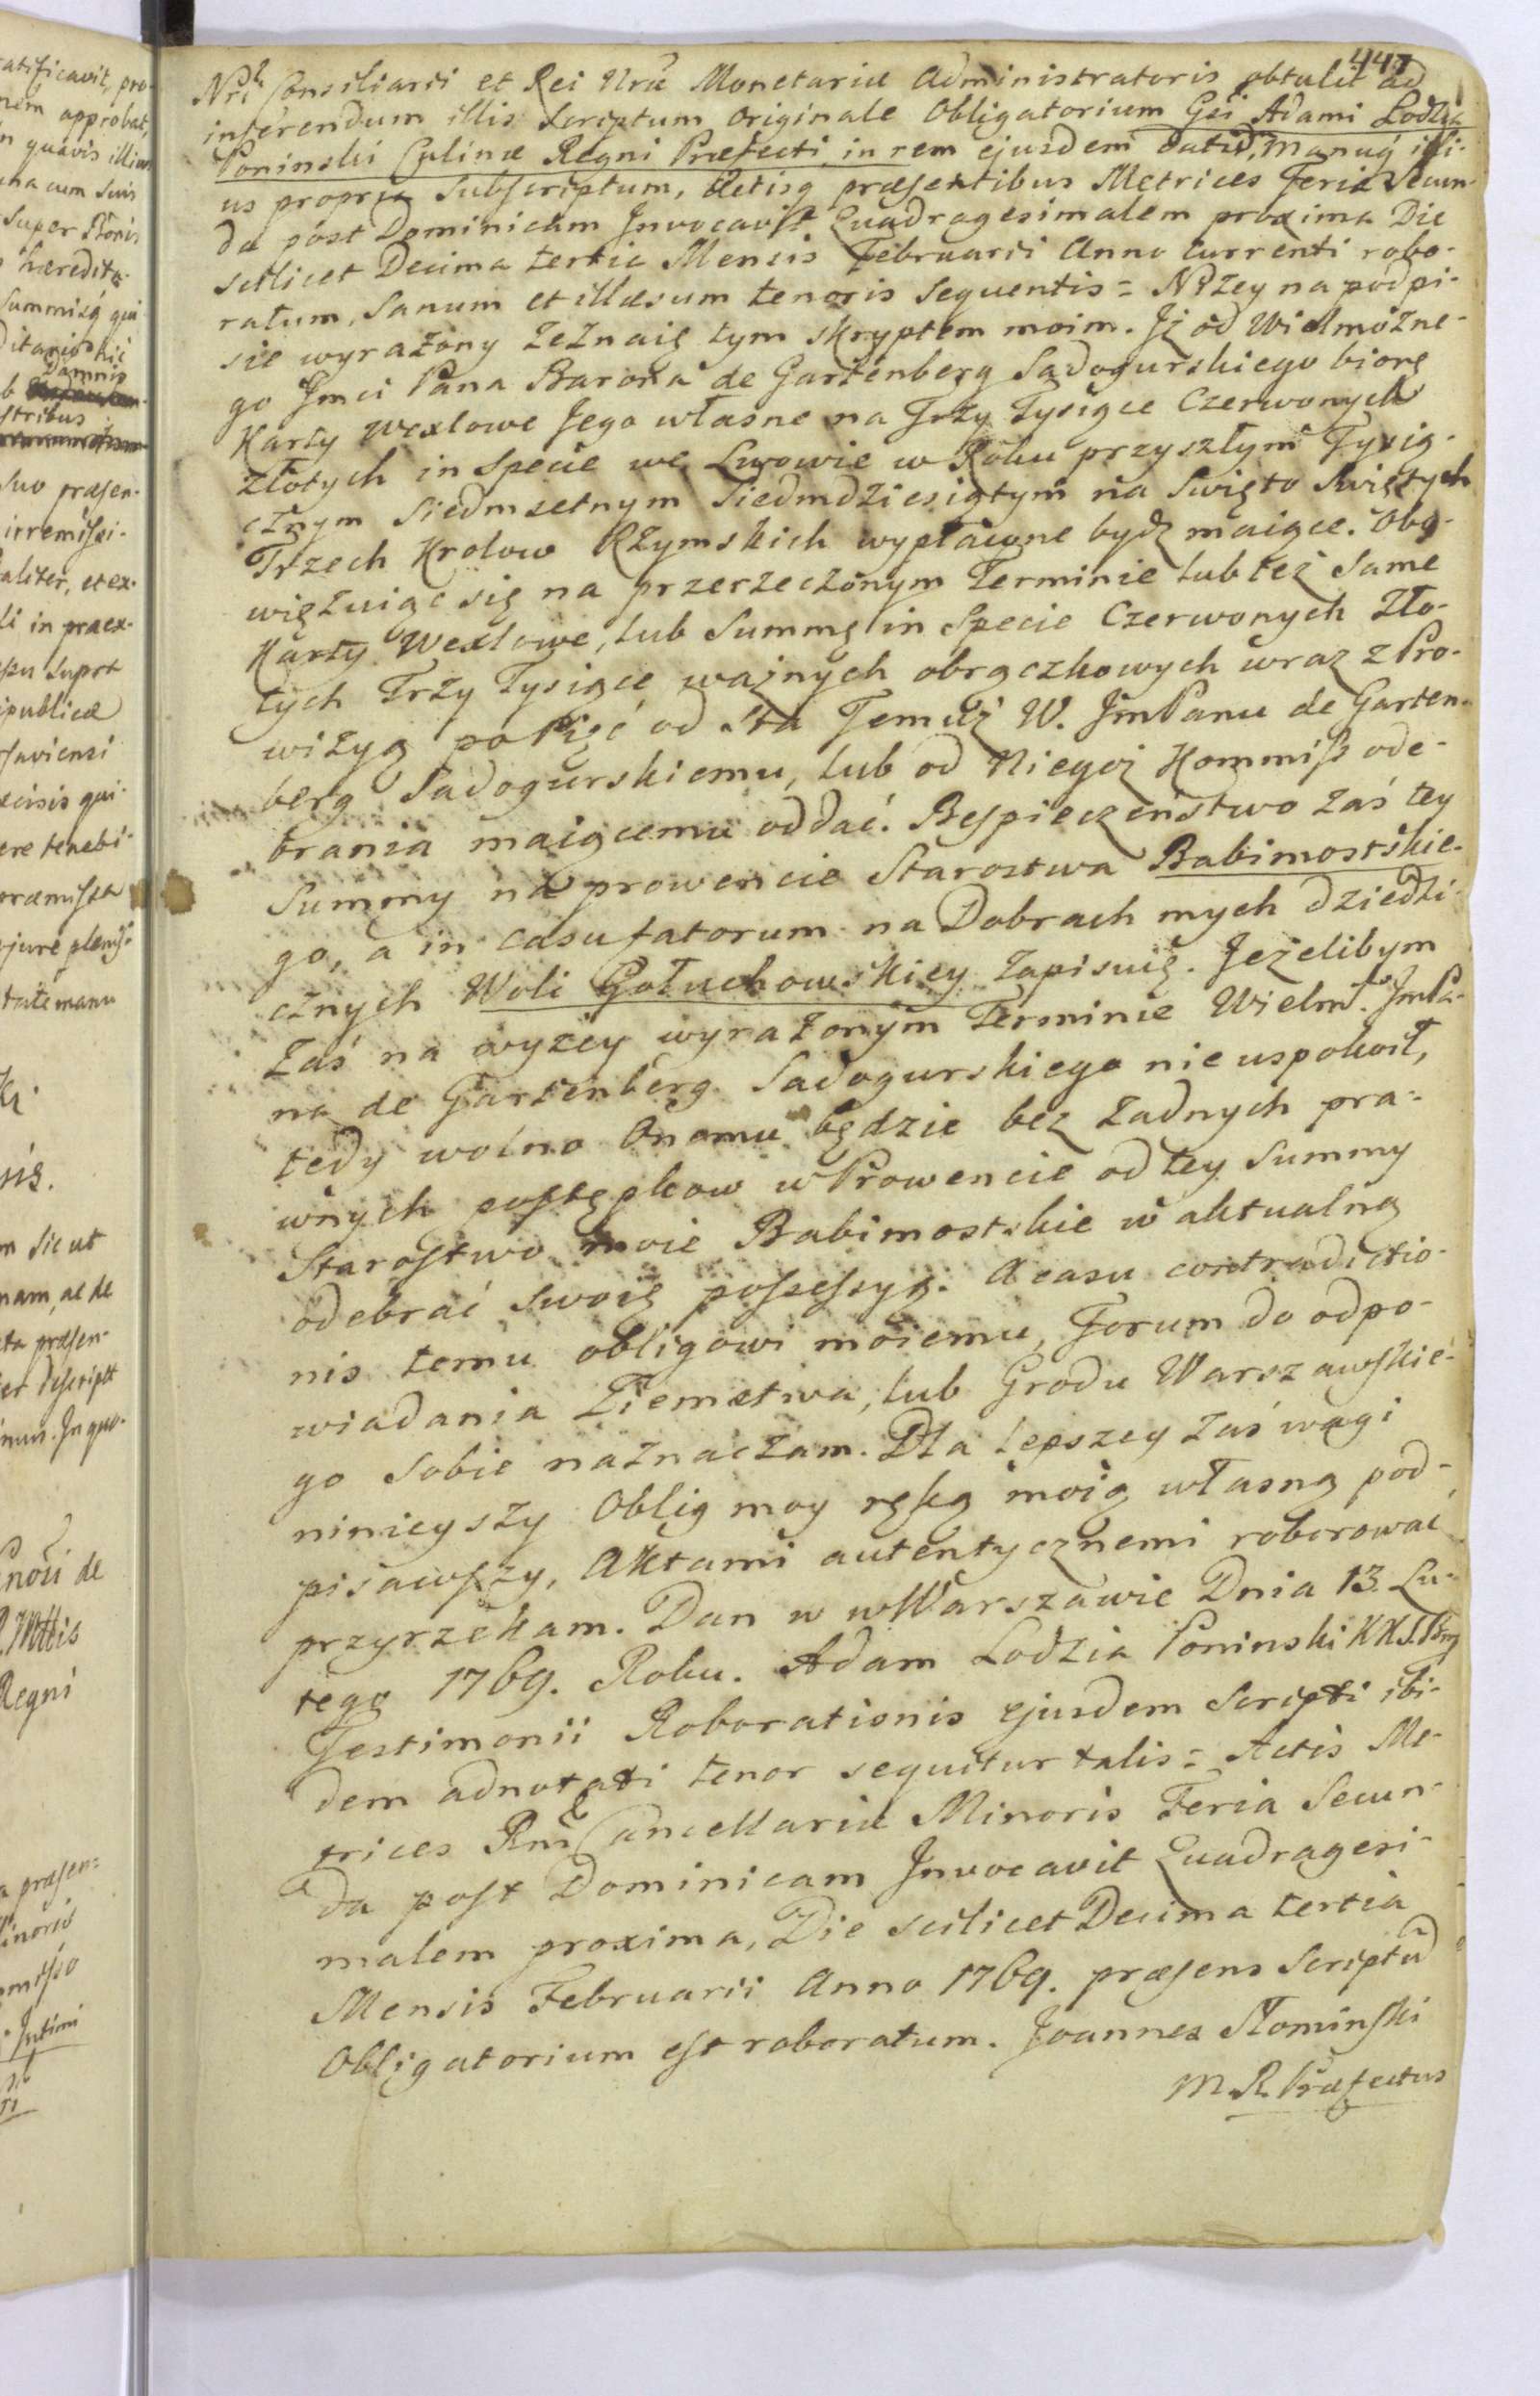 447
Nri Consiliarii et Rei Nræ Monetariæ Administratoris obtulit ad
inferendum illis Scriptum Originale Obligatorium Gsi Adami Lodzia
Poninski Culinæ Regni Præfecti, in rem ejusdem datũ, Manuq illi-
us propria Subscriptum, Actisq præsentibus Metrices Feria Secun-
da post Dominicam Invocavit Quadragesimalem proxima Die
scilicet Decima tertia Mensis Februarii Anno Currenti robo-
ratum, Sanum et illæsum tenoris Sequentis = Niżey na podpi-
sie wyrażony zeznaię tym skryptem moim. Iż od Wielmożne-
go Jmci Pana Barona de Gartenberg Sadogurskiego biorę
Karty wexlowe Jego własne na Trzy Tysiące Czerwonych
złotych in Specie we Lwowie w Roku przyszłym Tysią-
cznym Siedmsetnym Siedmdziesiątym na Swięto Swiętych
Trzech Krolow Rzymskich wypłacone bydz maiące. Obo-
więzuiąc się na przerzeczonym Terminie lub też Same
Karty Wexlowe, lub Summę in Specie Czerwonych Zło-
tych Trzy Tysiące ważnych obrączkowych wraz z Pro-
wizyą po Pięć od sta Temuż W. JmPanu de Garten-
berg Sadogurskiemu, lub od Niegoż Kommiss ode-
brania maiącemu oddać. Bespieczeństwo zaś tey
Summy na prowencie Starostwa Babimostskie-
go, a in casu fatorum na Dobrach mych dziedzi-
cznych Woli Gołuchowskiey zapisuię. Jeżelibym
zaś na wyżey wyrażonym Terminie Wielmgo JmPa-
na de Gartenberg Sadogurskiego nie uspokoił,
tedy wolno Onemu będzie bez żadnych pra-
wnych postępkow w Prowencie od tey Summy
Starostwo moie Babimostskie w aktualną
odebrać swoię possessyą. A casu contradictio-
nis temu obligowi moiemu, Forum do odpo-
wiadania Ziemstwa, lub Grodu Warszawskie-
go sobie naznaczam. Dla lepszey zaś wagi
ninieyszy Oblig moy ręką moią własną pod-
pisawszy, Aktami autentycznemi roborować
przyrzekam. Dan w wWarszawie Dnia 13. Lu-
tego 1769. Roku. Adam Lodzia Poninski KK.
Testimonii Roborationis ejusdem Scripti ibi-
dem adnotati tenor sequitur talis = Actis Me-
trices Rni Cancellariæ Minoris Feria Secun-
da post Dominicam Invocavit Quadragesi-
malem proxima, Die scilicet Decima tertia
Mensis Februarii Anno 1769. præsens Scriptũ
Obligatorium est roboratum. Joannes Słominski
M. R. Præfectus